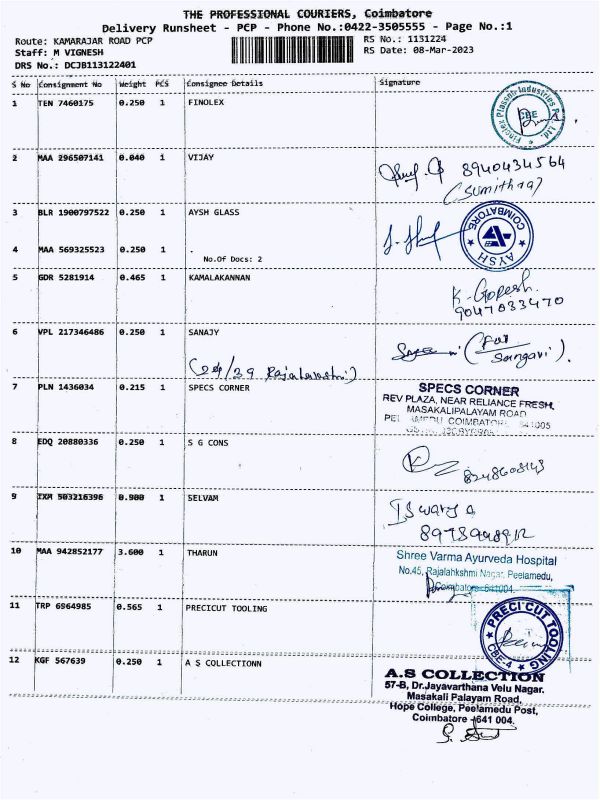 THE PROFESSIONAL COURIERS, Coimbatore
Delivery Runsheet - PCP - Phone No.:0422-3505555 - Page No.:1
Route: KAMARAJAR ROAD PCP
Staff: M VIGNESH
DRS No.: DCJB113122401
RS No.: 1131224
RS Date: 08-Mar-2023
S No Consignment No Weight PCS Consignee Details Signature
1 TEN 7460175 0.250 1 FINOLEX
Finolex Plasson Industries Ltd. CBE
2 MAA 296507141 0.040 1 VIJAY
8940434564
(Sumithaa)
3 BLR 1900797522 0.250 1 AYSH GLASS
COIMBATORE AYSH
4 MAA 569325523 0.250 1 .
No.Of Docs: 2
5 GDR 5281914 0.465 1 KAMALAKANNAN
K. Gopesh.
9047033470
6 VPL 217346486 0.250 1 SANAJY
(For Sangavi).
7 PLN 1436034 0.215 1 SPECS CORNER
SPECS CORNER
REV PLAZA, NEAR RELIANCE FRESH,
MASAKALIPALAYAM ROAD
COIMBATORE
8 EDQ 20880336 0.250 1 S G CONS
9 IXM 503216396 0.900 1 SELVAM
10 MAA 942852177 3.600 1 THARUN
Shree Varma Ayurveda Hospital
No.45, Rajalahkshmi Nagar, Peelamedu,
Coimbatore 641004.
11 TRP 6964985 0.565 1 PRECICUT TOOLING
PRECI'CUT TOOLING CBE-4
12 KGF 567639 0.250 1 A S COLLECTIONN
A.S COLLECTION
57-B, Dr.Jayavarthana Velu Nagar.
Masakali Palayam Road,
Hope College, Peelamedu Post,
Coimbatore - 641 004.